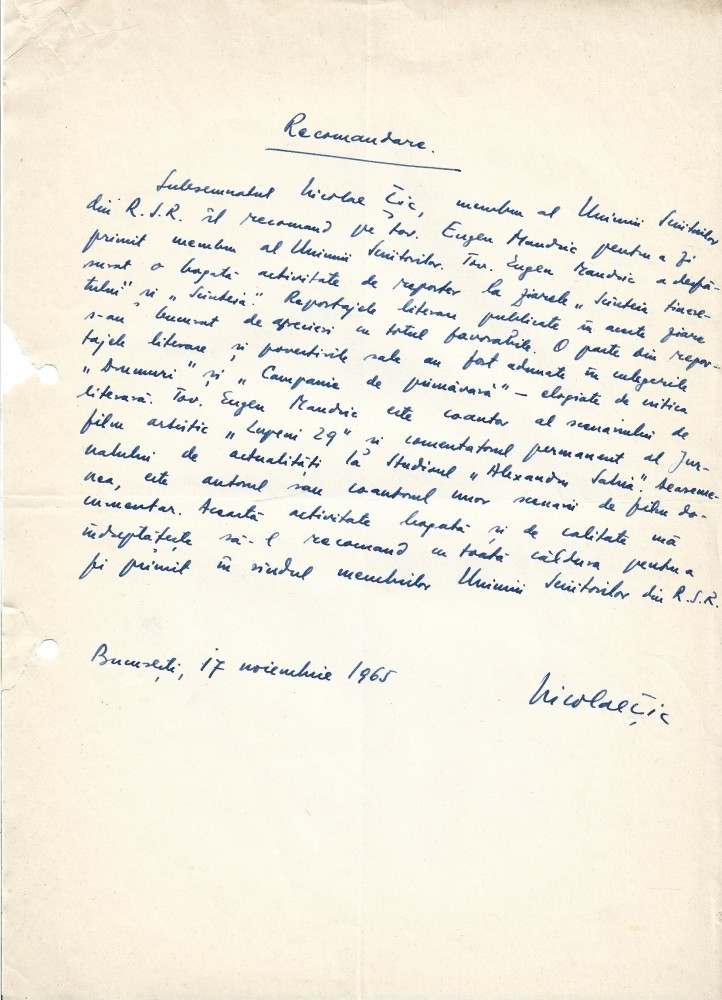 Recomandare.
Subsemnatul Nicolae Țic, membru al Uniunii Scriitorilor
din R.S.R. îl recomand pe tov. Eugen Mandric pentru a fi
primit membru al Uniunii Scriitorilor. Tov. Eugen Mandric a desfă-
șurat o bogată activitate de reporter la ziarele „Scînteia tinere-
tului" și „Scînteia". Reportajele literare publicate în aceste ziare
s-au bucurat de aprecieri cu totul favorabile. O parte din repor-
tajele literare și povestirile sale au fost adunate în culegerile
„Drumuri" și „Campania de primăvară" – elogiate de critica
literară. Tov. Eugen Mandric este coautor al scenariului de
film artistic „Lupeni 29" și comentatorul permanent al Jur-
nalului de actualități la Studioul „Alexandru Sahia". Deaseme-
nea, este autorul sau coautorul unor scenarii de film do-
cumentar. Această activitate bogată și de calitate mă
îndreptățește să-l recomand cu toată căldura pentru a
fi primit în rîndul membrilor Uniunii Scriitorilor din R.S.R.
București, 17 noiembrie 1965
Nicolae Țic